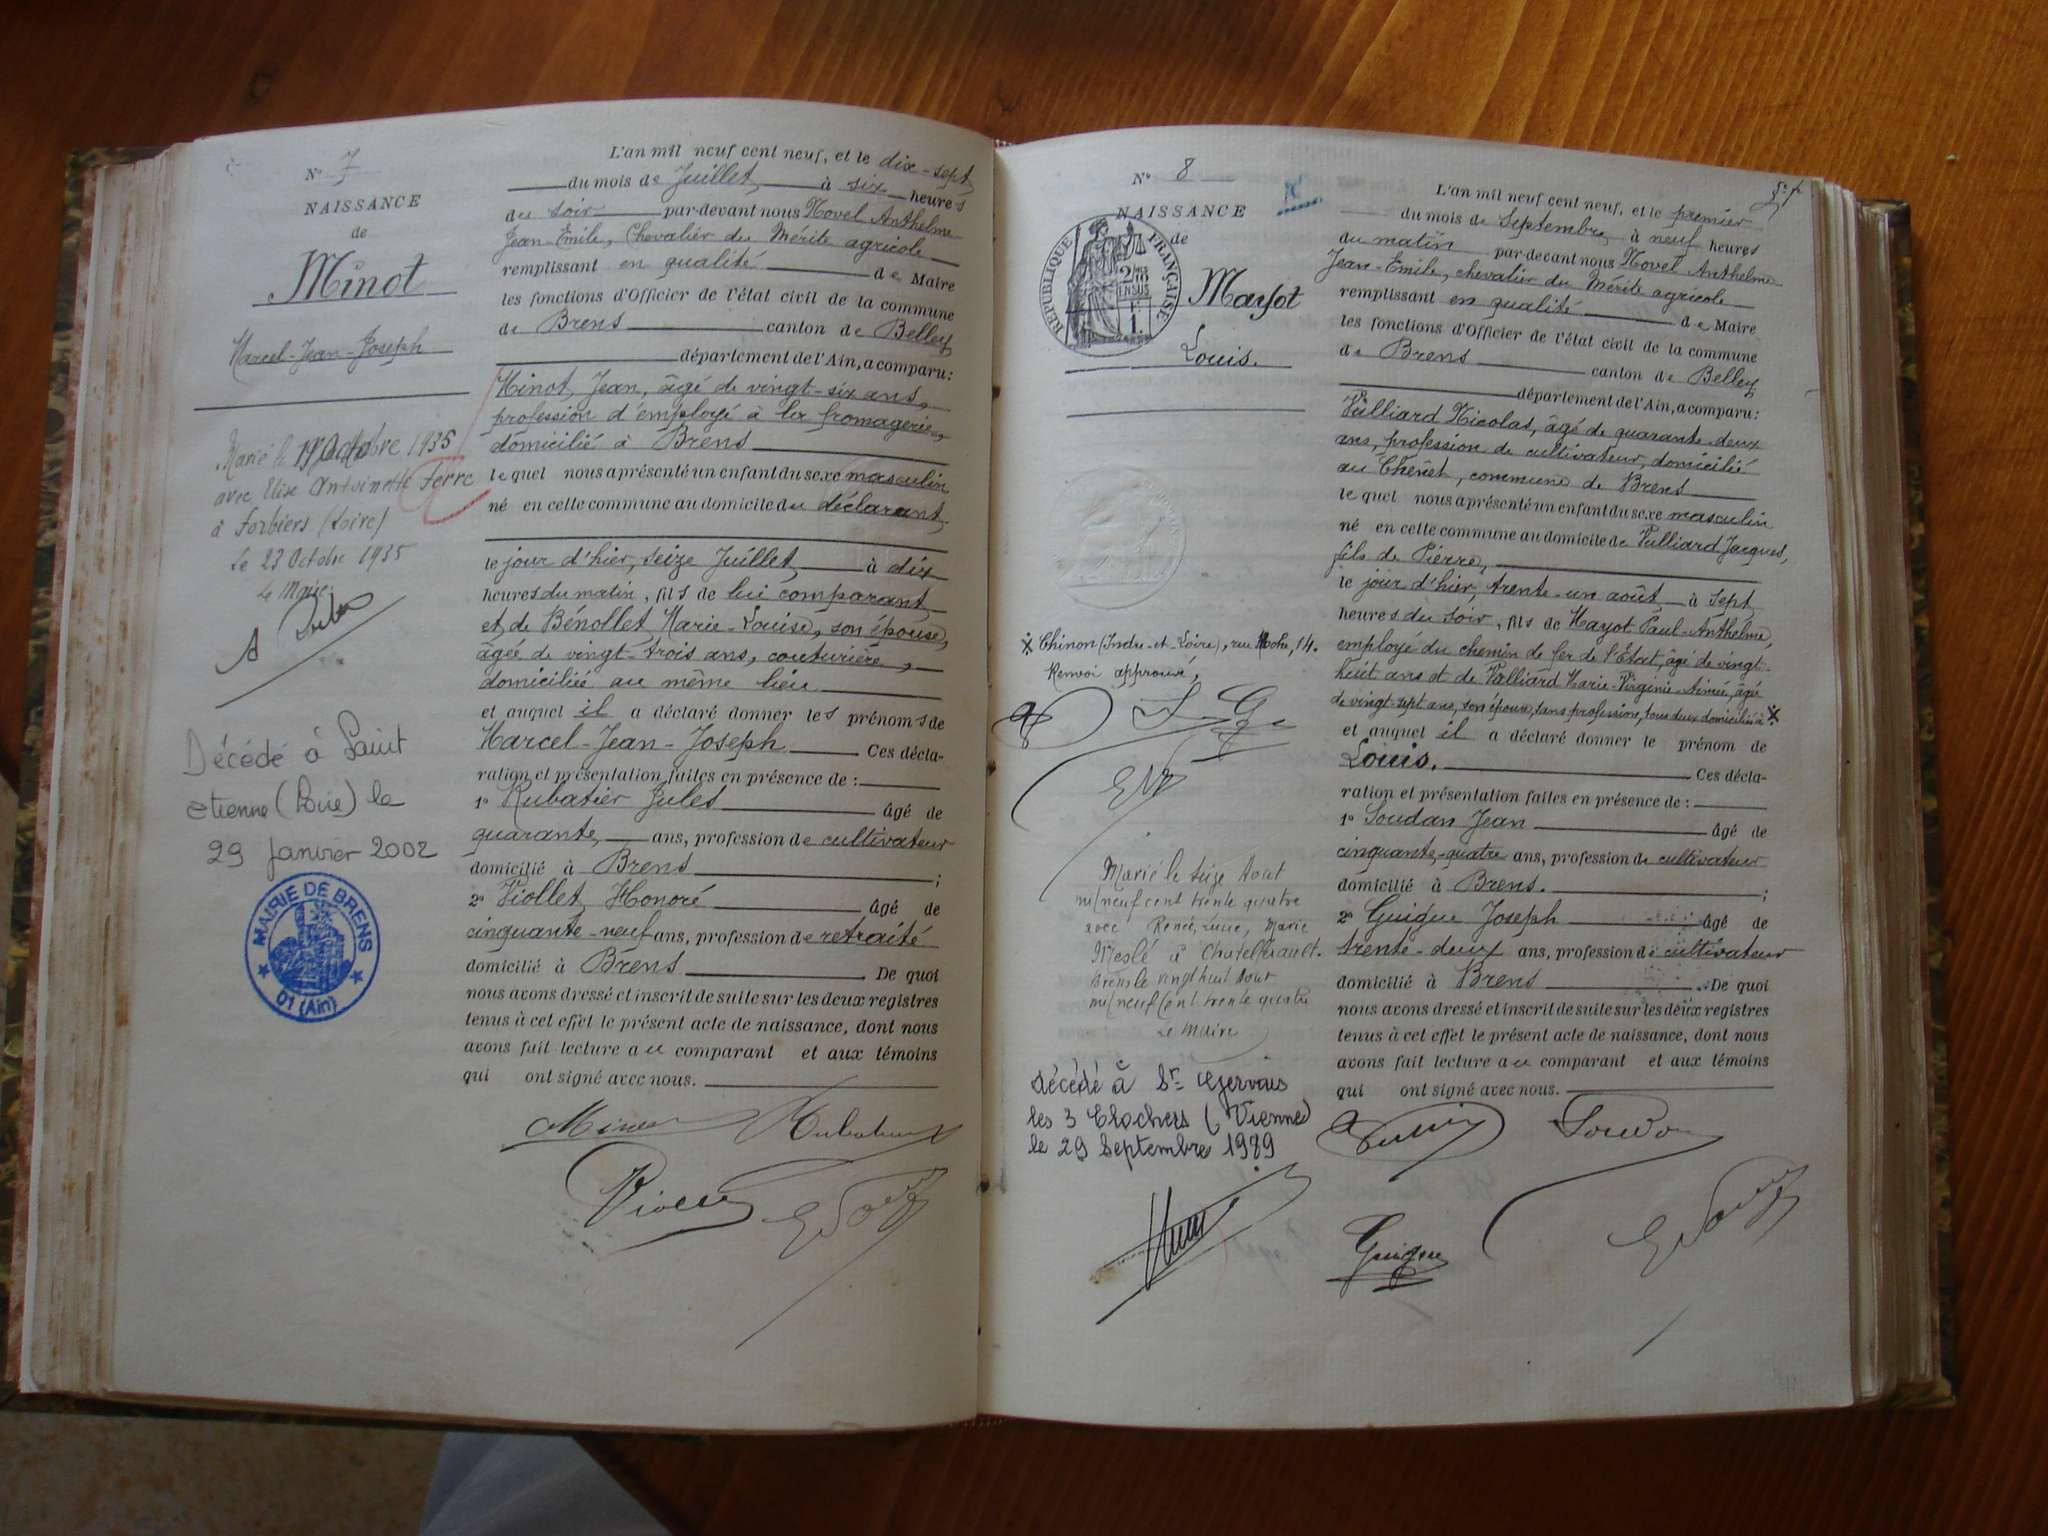 N° 7
NAISSANCE
de
Minot
Marcel-Jean-Joseph
Marié le 19 Octobre 1935
avec Elise Antoinette Ferre
à (Loire)
le 23 Octobre 1935
Le Maire
Décédé à Saint
etienne (Loire) le
29 Janvier 2002
MAIRIE DE BRENS
01 (Ain)
L'an mil neuf cent neuf, et le dix-sept
du mois de Juillet à six heures
du soir par-devant nous Novel Anthelme
Jean-Emile, Chevalier du Mérite agricole
remplissant en qualité de Maire
les fonctions d'Officier de l'état civil de la commune
de Brens canton de Belley
département de l'Ain, a comparu:
Minot Jean, âgé de vingt-six ans,
profession d'employé à la fromagerie,
domicilié à Brens
lequel nous a présenté un enfant du sexe masculin
né en cette commune au domicile du déclarant,
le jour d'hier, seize Juillet à dix
heures du matin, fils de lui comparant
et de Bénollet Marie-Louise, son épouse,
âgée de vingt-trois ans, couturière,
domiciliés au même lieu
et auquel il a déclaré donner les prénoms de
Marcel-Jean-Joseph Ces décla-
ration et présentation faites en présence de :
1° Rubatier Jules âgé de
quarante ans, profession de cultivateur
domicilié à Brens ;
2° Viollet Honoré âgé de
cinquante-neuf ans, profession de retraité
domicilié à Brens. De quoi
nous avons dressé et inscrit de suite sur les deux registres
tenus à cet effet le présent acte de naissance, dont nous
avons fait lecture au comparant et aux témoins
qui ont signé avec nous.
N° 8
NAISSANCE
de
RÉPUBLIQUE FRANÇAISE
2/10
EN SUS
1.
Mayot
Louis.
※ Chinon (Indre-et-Loire), rue 14.
Renvoi approuvé,
Marié le seize Aout
mil neuf cent trente quatre
avec Renée, Lucie, Marie
Meslé à Chatellerault.
Brens le vingt huit Aout
mil neuf cent trente quatre
Le Maire
décédé à St Gervais
les 3 Clochers (Vienne)
le 29 Septembre 1989
L'an mil neuf cent neuf, et le premier
du mois de Septembre à neuf heures
du matin par-devant nous Novel Anthelme
Jean-Emile, chevalier du Mérite agricole
remplissant en qualité de Maire
les fonctions d'Officier de l'état civil de la commune
de Brens canton de Belley
département de l'Ain, a comparu:
Vulliard Nicolas, âgé de quarante-deux
ans, profession de cultivateur, domicilié
au Chênet, commune de Brens
lequel nous a présenté un enfant du sexe masculin
né en cette commune au domicile de Vulliard Jacques,
fils de Pierre,
le jour d'hier, trente-un août à sept
heures du soir, fils de Mayot Paul-Anthelme,
employé du chemin de fer de l'Etat, âgé de vingt-
huit ans et de Vulliard Marie-Virginie-Aimée, âgée
de vingt-sept ans, son épouse, sans profession, tous deux domiciliés à ※
et auquel il a déclaré donner le prénom de
Louis. Ces décla-
ration et présentation faites en présence de :
1° Soudan Jean âgé de
cinquante-quatre ans, profession de cultivateur
domicilié à Brens. ;
2° Guigue Joseph âgé de
trente-deux ans, profession de cultivateur
domicilié à Brens. De quoi
nous avons dressé et inscrit de suite sur les deux registres
tenus à cet effet le présent acte de naissance, dont nous
avons fait lecture au comparant et aux témoins
qui ont signé avec nous.
Guigue